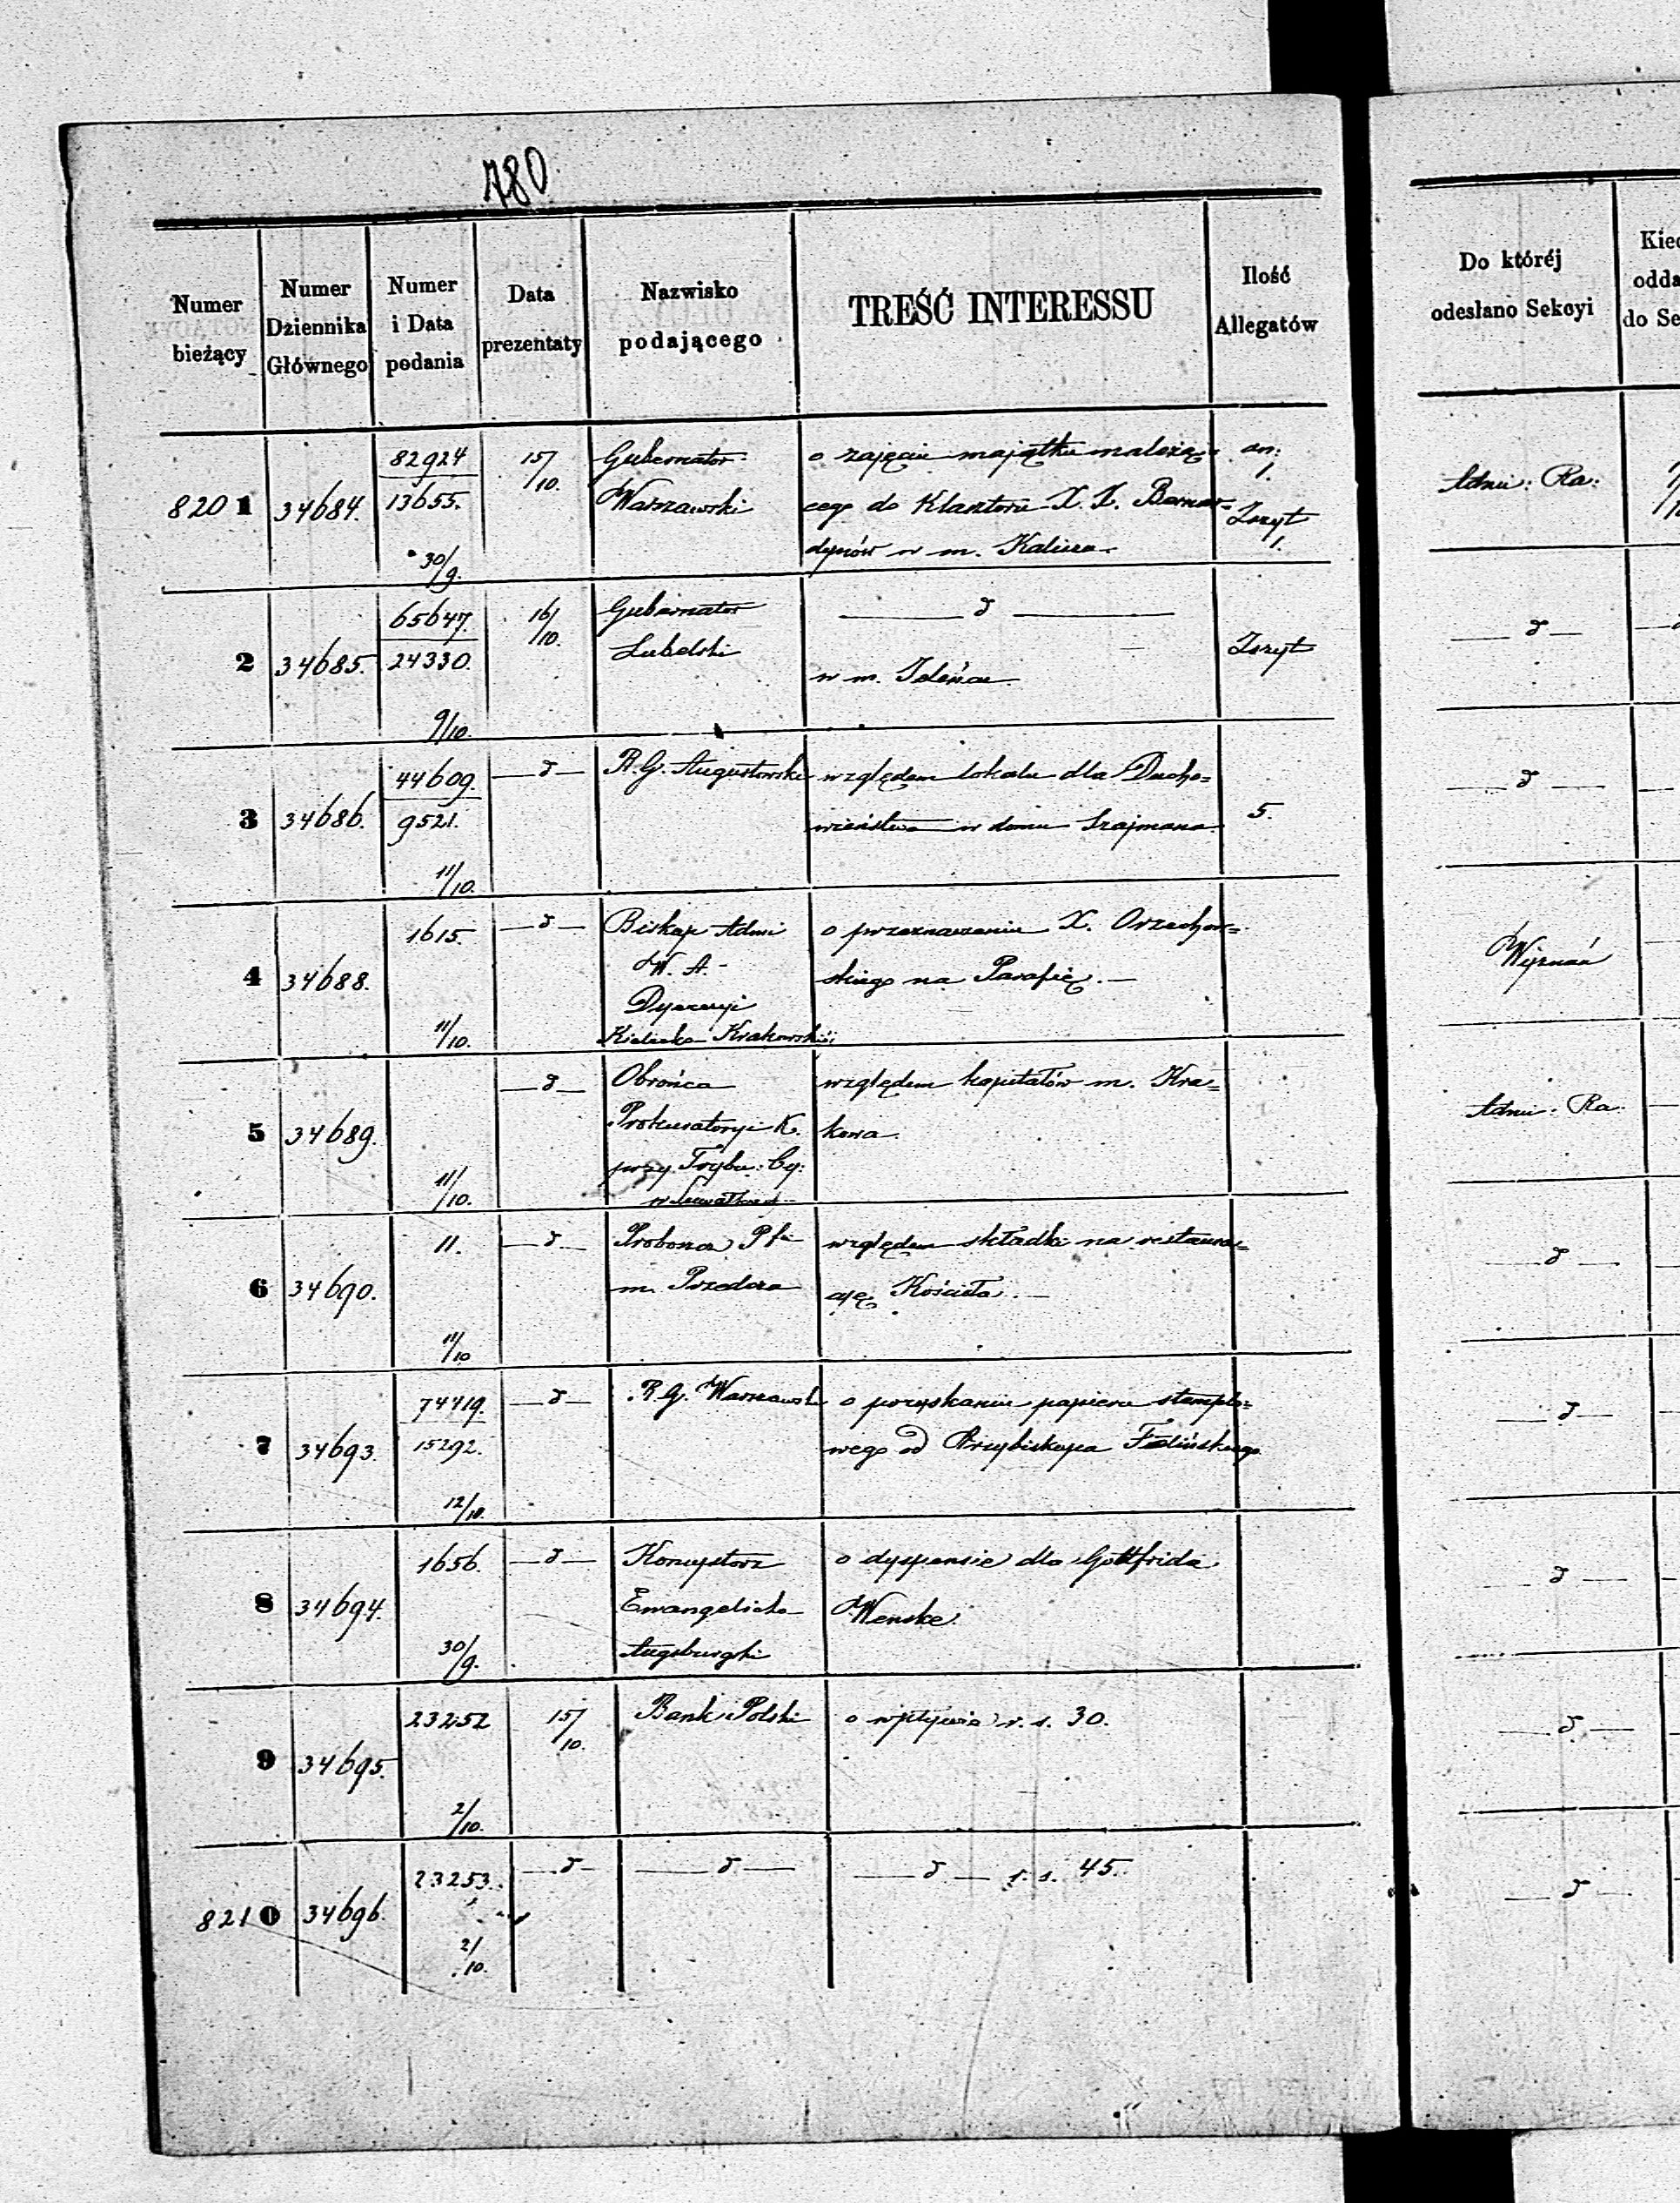 780
Numer bieżący
Numer Dziennika Głównego
Numer i Data podania
Data prezentaty
Nazwisko podającego
TREŚĆ INTERESSU
Ilość Allegatów
Do któréj odesłano Sekcyi
8201 34684. 82924 13655. 30/9. 15/10. Gubernator o zajęciu majątku należą- an: 1. Admi: Ra:
Warszawski cego do Klasztoru X. X. Bernar= Zszyt 1.
dynów w m. Kalisza
2 34685. 65647. 24330. 9/10. 16/10. Gubernator — d — Zszyt — d —
Lubelski w m.
3 34686. 44609. 9521. 11/10. — d — R. G. Augustowski względem lokalu dla Ducho= 5. — d —
wieństwa w domu Szajmana
4 34688. 1615. 11/10. — d — Biskup Admi o przeznaczeniu X. Orzechow= Wyznań
W. A. skiego na Parafię. —
Dyecezyi
Kielecko Krakowskiéj
5 34689. 11/10. — d — Obrońca względem kapitałów m. Kra= Admi: Ra:
Prokuratoryi K. kowa.
przy Trybu: Cy:
w Suwałkach
6 34690. 11. 11/10 — d — Proboszcz Pfii względem składki na restaura= — d —
m. Przedcza cyę Kościoła. —
7 34693. 74419. 15292. 12/10. — d — R. G. Warszawski o pozyskaniu papieru stemplo= — d —
wego od Arcybiskupa Felińskiego
8 34694. 1656. 30/9. — d — Konsystorz o dyspensie dla Gottfrida — d —
Ewangelicko Wenske.
Augsburgski
9 34695. 23252 2/10. 15/10. Bank Polski o wpływie r. s. 30. — d —
8210 34696. 23253. 2/10. — d — — d — — d — r. s. 45. — d —